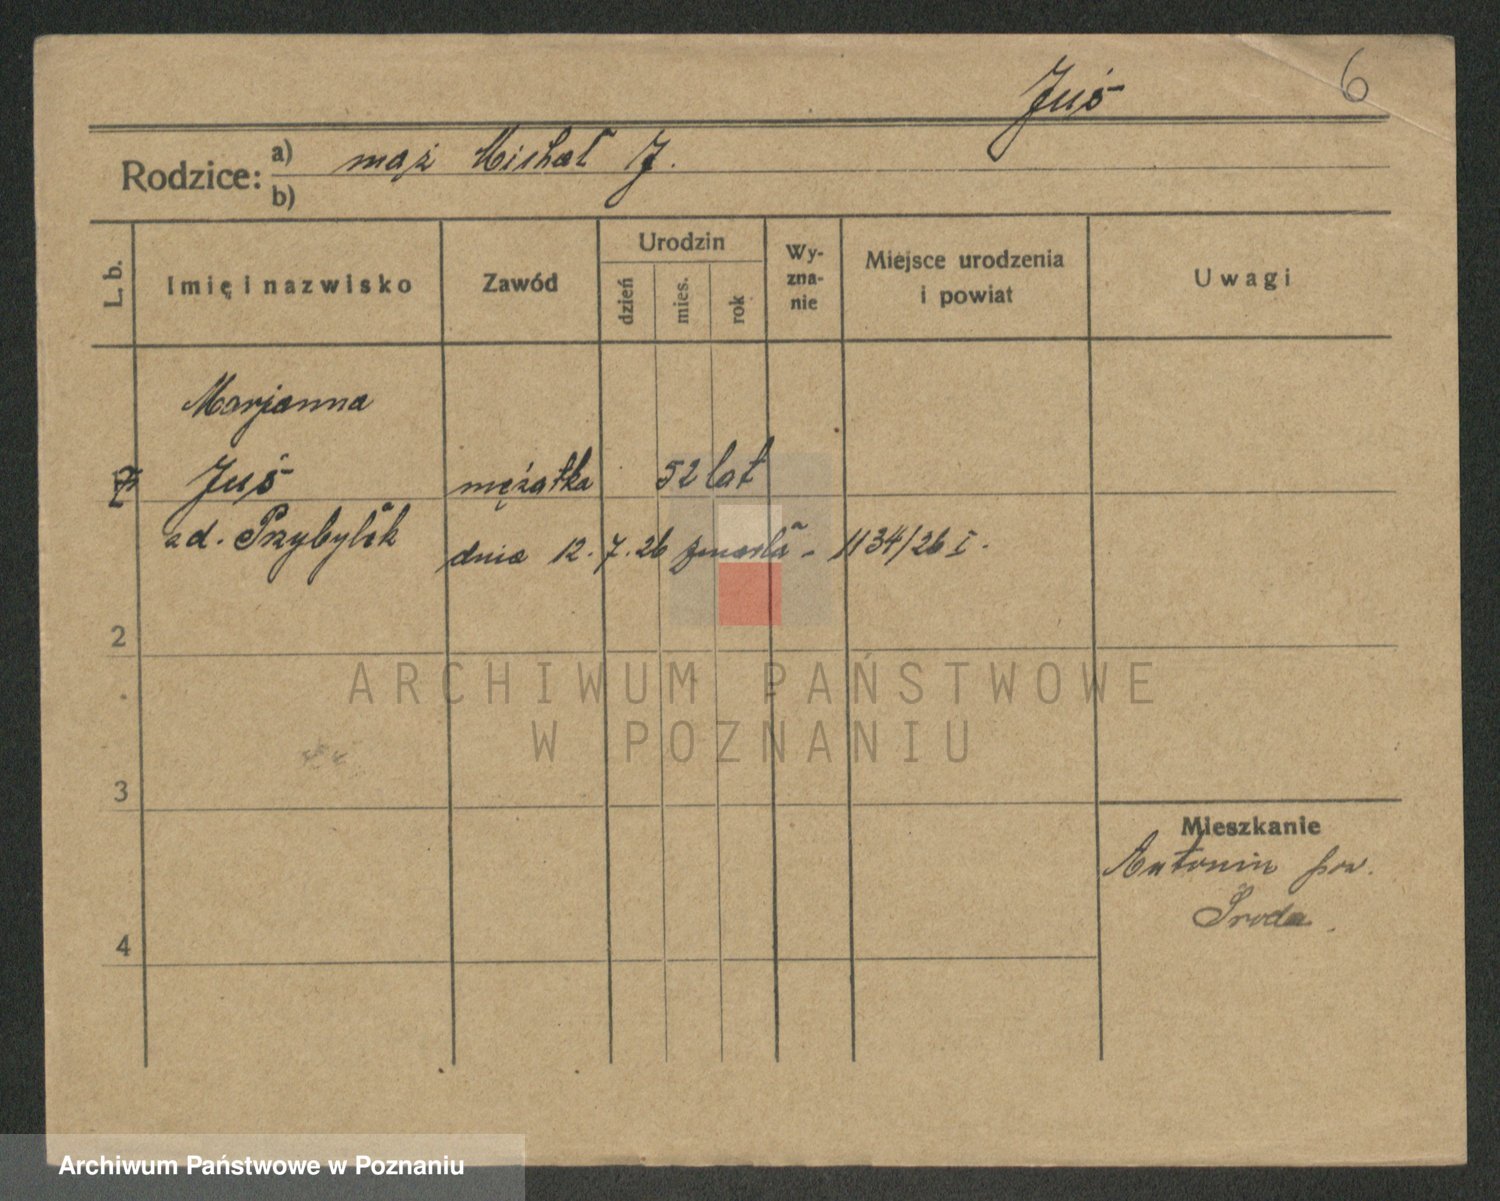 Juś 6
Rodzice: a) mąż Michał J.
b)
L. b. Imię i nazwisko Zawód Urodzin dzień mies. rok Wy-zna-nie Miejsce urodzenia i powiat Uwagi
Marjanna
Juś mężatka 52 lat
zd. Przybylak
dnia 12.7.26 zmarła - 1134/26 I.
2
ARCHIWUM PAŃSTWOWE
W POZNANIU
3
Mieszkanie
Antonin pow.
Środa.
4
Archiwum Państwowe w Poznaniu